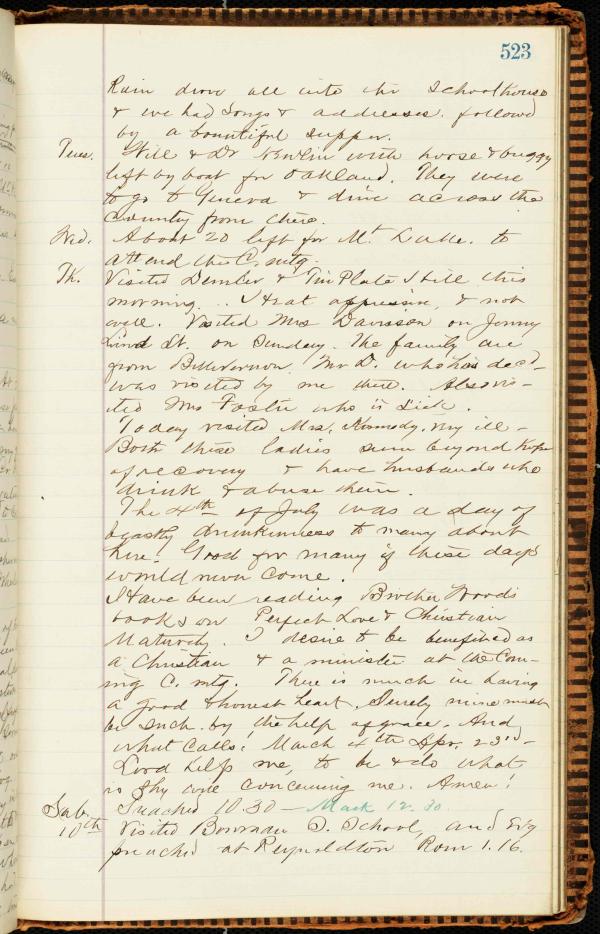 523
Rain drove all into the Schoolhouse
& we had Songs & addresses. followed
by a bountiful supper.
Tues. Will & Dr Newlin with horse & buggy
left by boat for Oakland. They were
to go to Geneva & drive across the
Country from there.
Wed. About 20 left for Mt Lake. to
attend the C. mtg.
Th. Visited Demler & Tin Plate Mill this
morning. .. Heat oppressive, & not
well. Visited Mrs Davisson on Jenny
Lind St. on Sunday. The family are
from Bellevernon. Mr D. who has decd-
was visited by me there. Also vis-
ited Mrs Foster who is Sick.
Today visited Mrs. Kennedy, very ill-
Both these ladies seem beyond hope
of recovery & have husbands who
drink & abuse them.
The 4th of July was a day of
beastly drunkenness to many about
here. Good for many if these days
would never come.
I Have been reading Brother Woods
books on Perfect Love & Christian
Maturity. I desire to be benefited as
a Christian & a minister at the Com-
ing C. mtg. There is much in having
a good & honest heart. Surely mine must
be such. by the help of grace. And
what Calls! March 4th Apr. 23rd-
Lord help me, to be & do what
is Thy will concerning me. Amen!
Sab. Preached 10.30 - Mark 12.30.
10th Visited Bowman S. School, and Evg
preached at Reynoldton Rom 1.16.